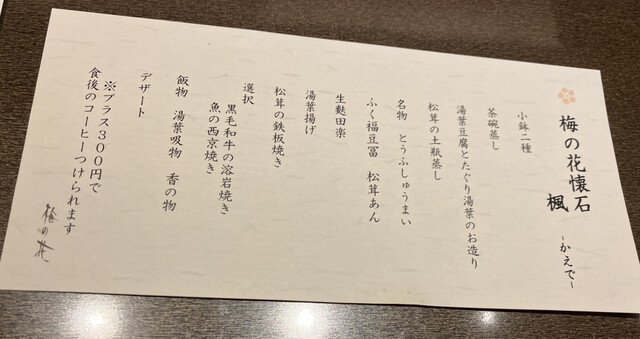 梅の花懐石
楓
-かえで-
小鉢二種
茶碗蒸し
湯葉豆腐とたぐり湯葉のお造り
松茸の土瓶蒸し
名物 とうふしゅうまい
ふく福豆冨 松茸あん
生麩田楽
湯葉揚げ
松茸の鉄板焼き
選択
黒毛和牛の溶岩焼き
魚の西京焼き
飯物 湯葉吸物 香の物
デザート
※プラス300円で
食後のコーヒーつけられます
梅の花